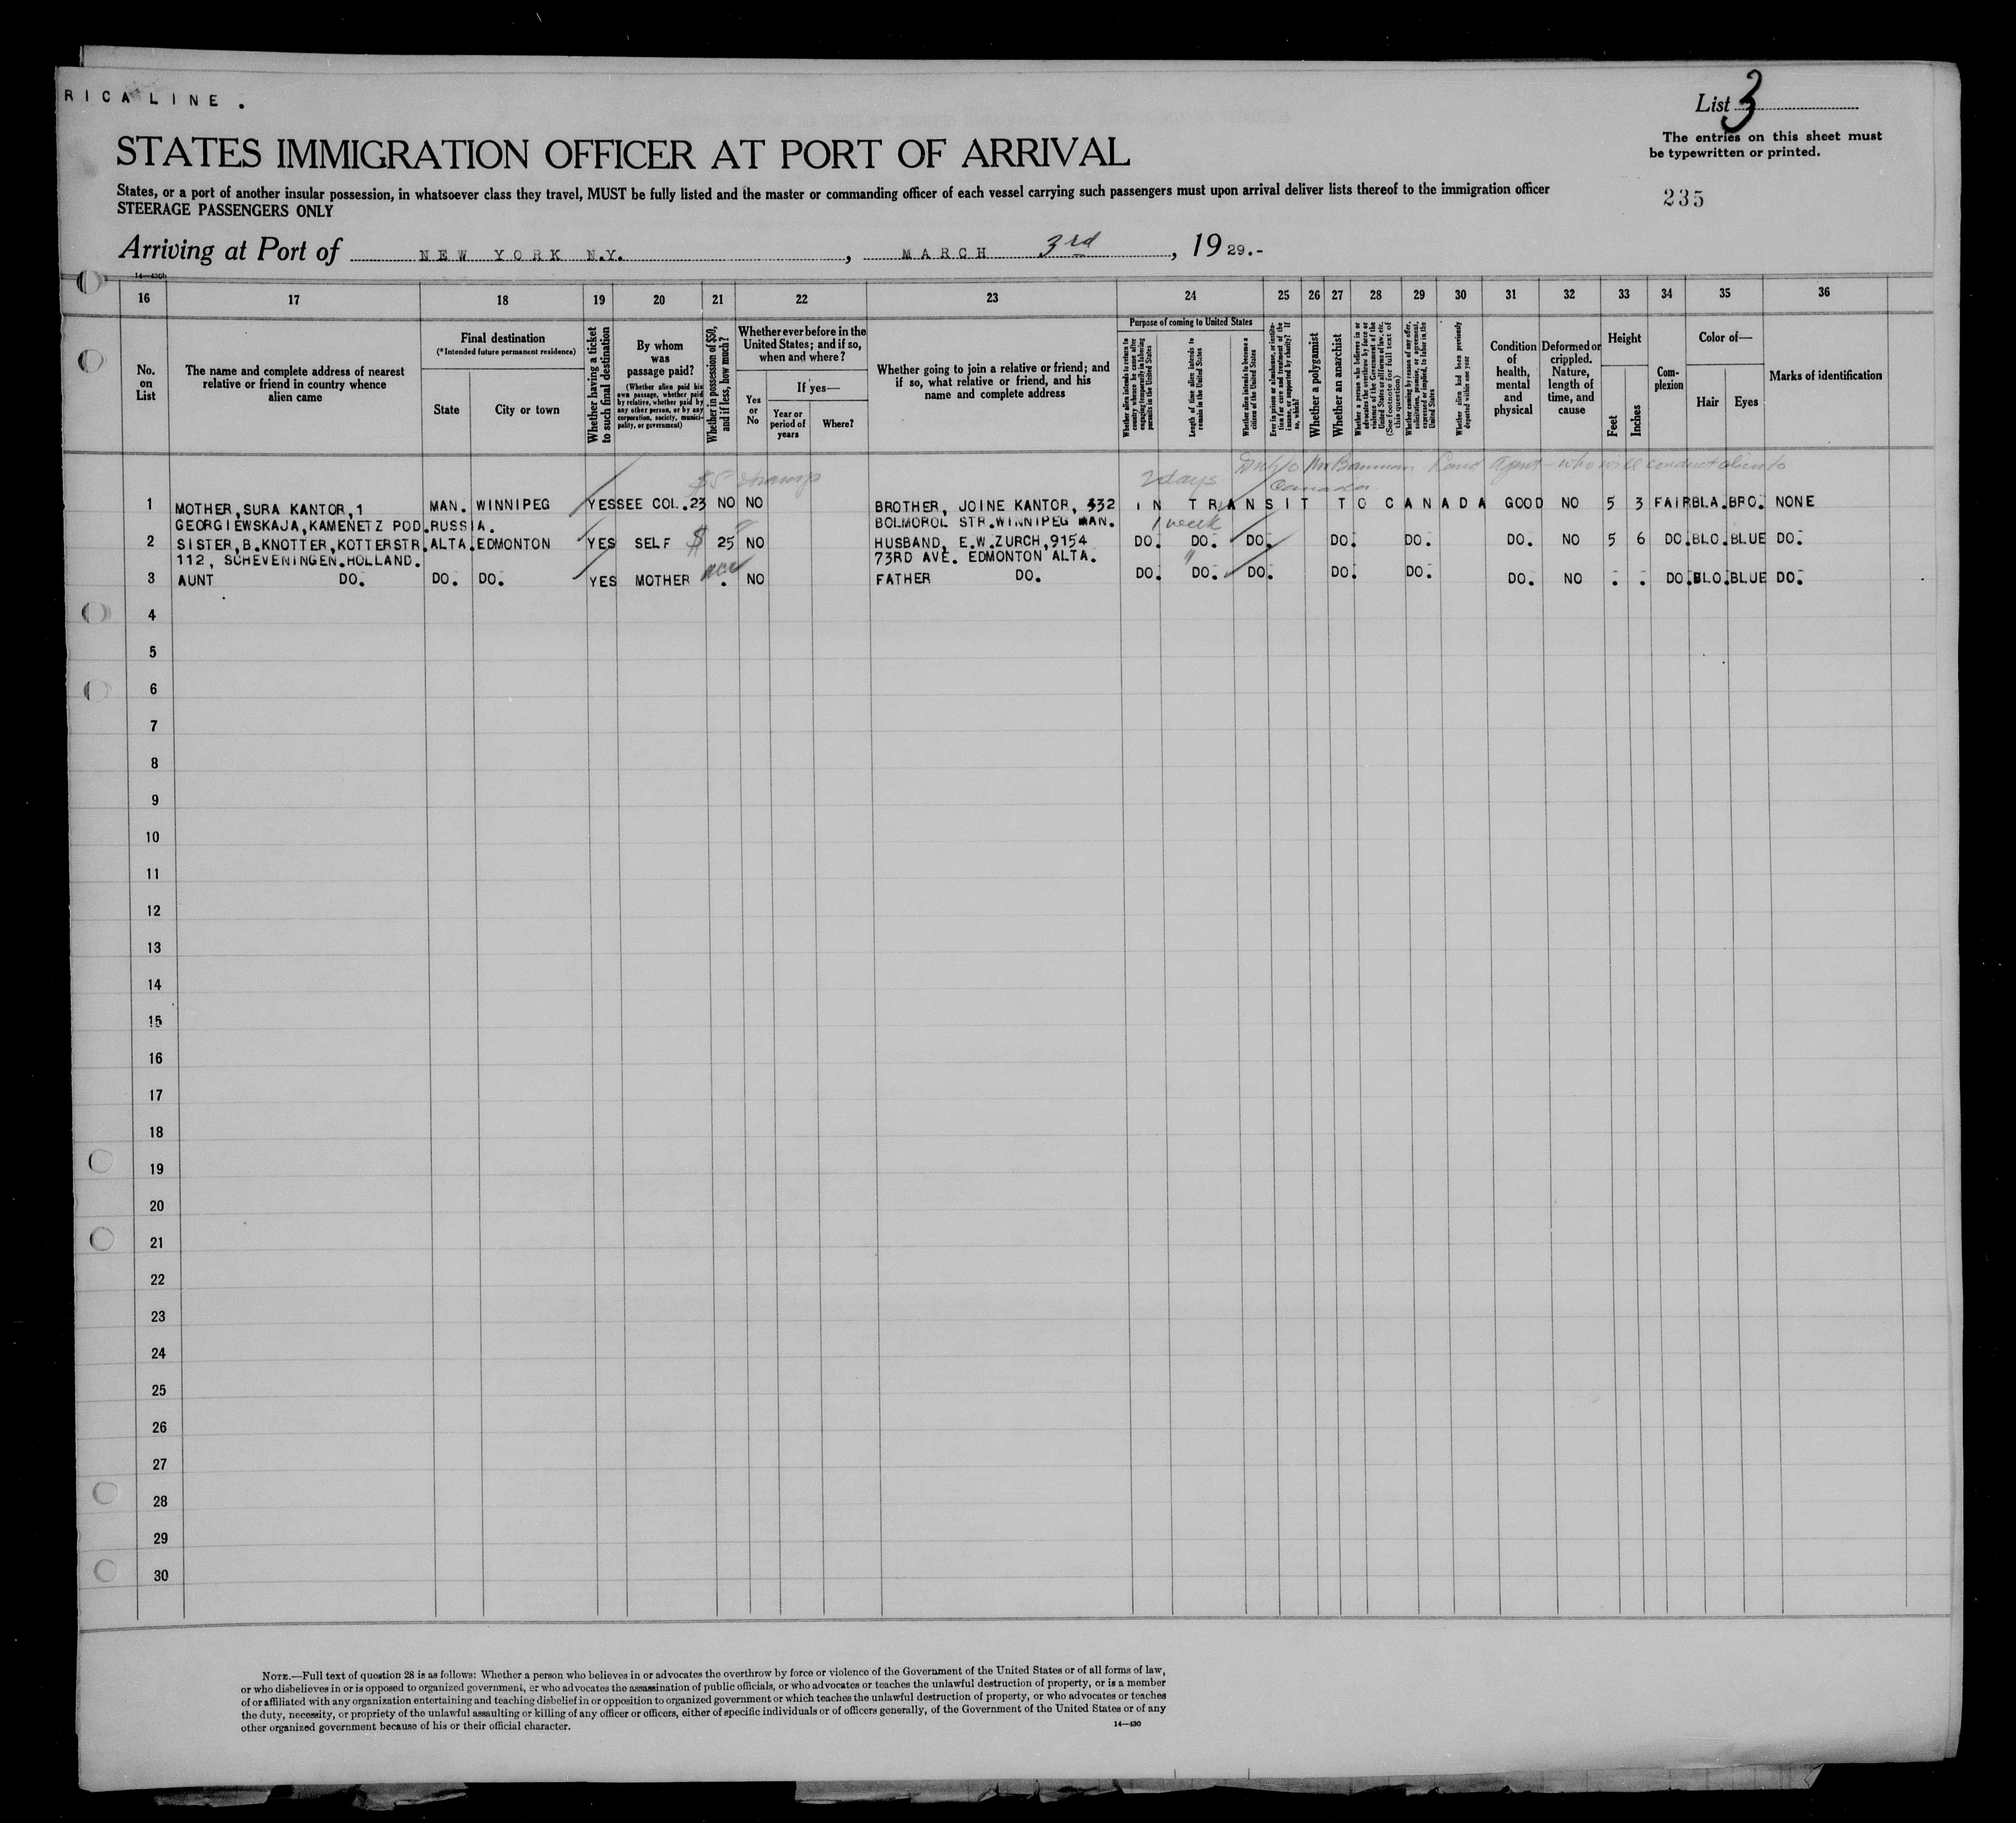 RICA LINE .
List 3
The entries on this sheet must
be typewritten or printed.
STATES IMMIGRATION OFFICER AT PORT OF ARRIVAL
States, or a port of another insular possession, in whatsoever class they travel, MUST be fully listed and the master or commanding officer of each vessel carrying such passengers must upon arrival deliver lists thereof to the immigration officer
STEERAGE PASSENGERS ONLY
235
Arriving at Port of NEW YORK N.Y. , MARCH 3rd , 1929.-
14—430b
16 17 18 19 20 21 22 23 24 25 26 27 28 29 30 31 32 33 34 35 36
No. on List
The name and complete address of nearest relative or friend in country whence alien came
Final destination
(*Intended future permanent residence)
State
City or town
Whether having a ticket to such final destination
By whom was passage paid?
(Whether alien paid his own passage, whether paid by relative, whether paid by any other person, or by any corporation, society, municipality, or government)
Whether in possession of $50, and if less, how much?
Whether ever before in the United States; and if so, when and where?
Yes or No
If yes—
Year or period of years
Where?
Whether going to join a relative or friend; and if so, what relative or friend, and his name and complete address
Purpose of coming to United States
Whether alien intends to return to country whence he came after engaging temporarily in laboring pursuits in the United States
Length of time alien intends to remain in the United States
Whether alien intends to become a citizen of the United States
Ever in prison or almshouse, or institution for care and treatment of the insane, or supported by charity? If so, which?
Whether a polygamist
Whether an anarchist
Whether a person who believes in or advocates the overthrow by force or violence of the Government of the United States or all forms of law, etc. (See footnote for full text of this question)
Whether coming by reason of any offer, solicitation, promise, or agreement, expressed or implied, to labor in the United States
Whether alien had been previously deported within one year
Condition of health, mental and physical
Deformed or crippled. Nature, length of time, and cause
Height
Feet
Inches
Complexion
Color of—
Hair
Eyes
Marks of identification
$5 stamp
2 days
Mr Bauman Land Agent - who will conduct alien to
Canada
1 MOTHER,SURA KANTOR,1 MAN. WINNIPEG YES SEE COL.23 NO NO BROTHER, JOINE KANTOR, 332 IN TRANSIT TO CANADA GOOD NO 5 3 FAIR BLA. BRO. NONE
GEORGIEWSKAJA,KAMENETZ POD.RUSSIA. BOLMOROL STR.WINNIPEG MAN. 1 week
2 SISTER,B.KNOTTER,KOTTERSTR. ALTA. EDMONTON YES SELF $ 25 NO HUSBAND, E.W.ZURCH,9154 DO. DO. DO. DO. DO. DO. NO 5 6 DO. BLO. BLUE DO.
112, SCHEVENINGEN.HOLLAND. 73RD AVE. EDMONTON ALTA. "
3 AUNT DO. DO. DO. YES MOTHER . NO FATHER DO. DO. DO. DO. DO. DO. DO. NO . . DO. BLO. BLUE DO.
4
5
6
7
8
9
10
11
12
13
14
15
16
17
18
19
20
21
22
23
24
25
26
27
28
29
30
NOTE.—Full text of question 28 is as follows: Whether a person who believes in or advocates the overthrow by force or violence of the Government of the United States or of all forms of law,
or who disbelieves in or is opposed to organized government, or who advocates the assassination of public officials, or who advocates or teaches the unlawful destruction of property, or is a member
of or affiliated with any organization entertaining and teaching disbelief in or opposition to organized government or which teaches the unlawful destruction of property, or who advocates or teaches
the duty, necessity, or propriety of the unlawful assaulting or killing of any officer or officers, either of specific individuals or of officers generally, of the Government of the United States or of any
other organized government because of his or their official character.
14—430